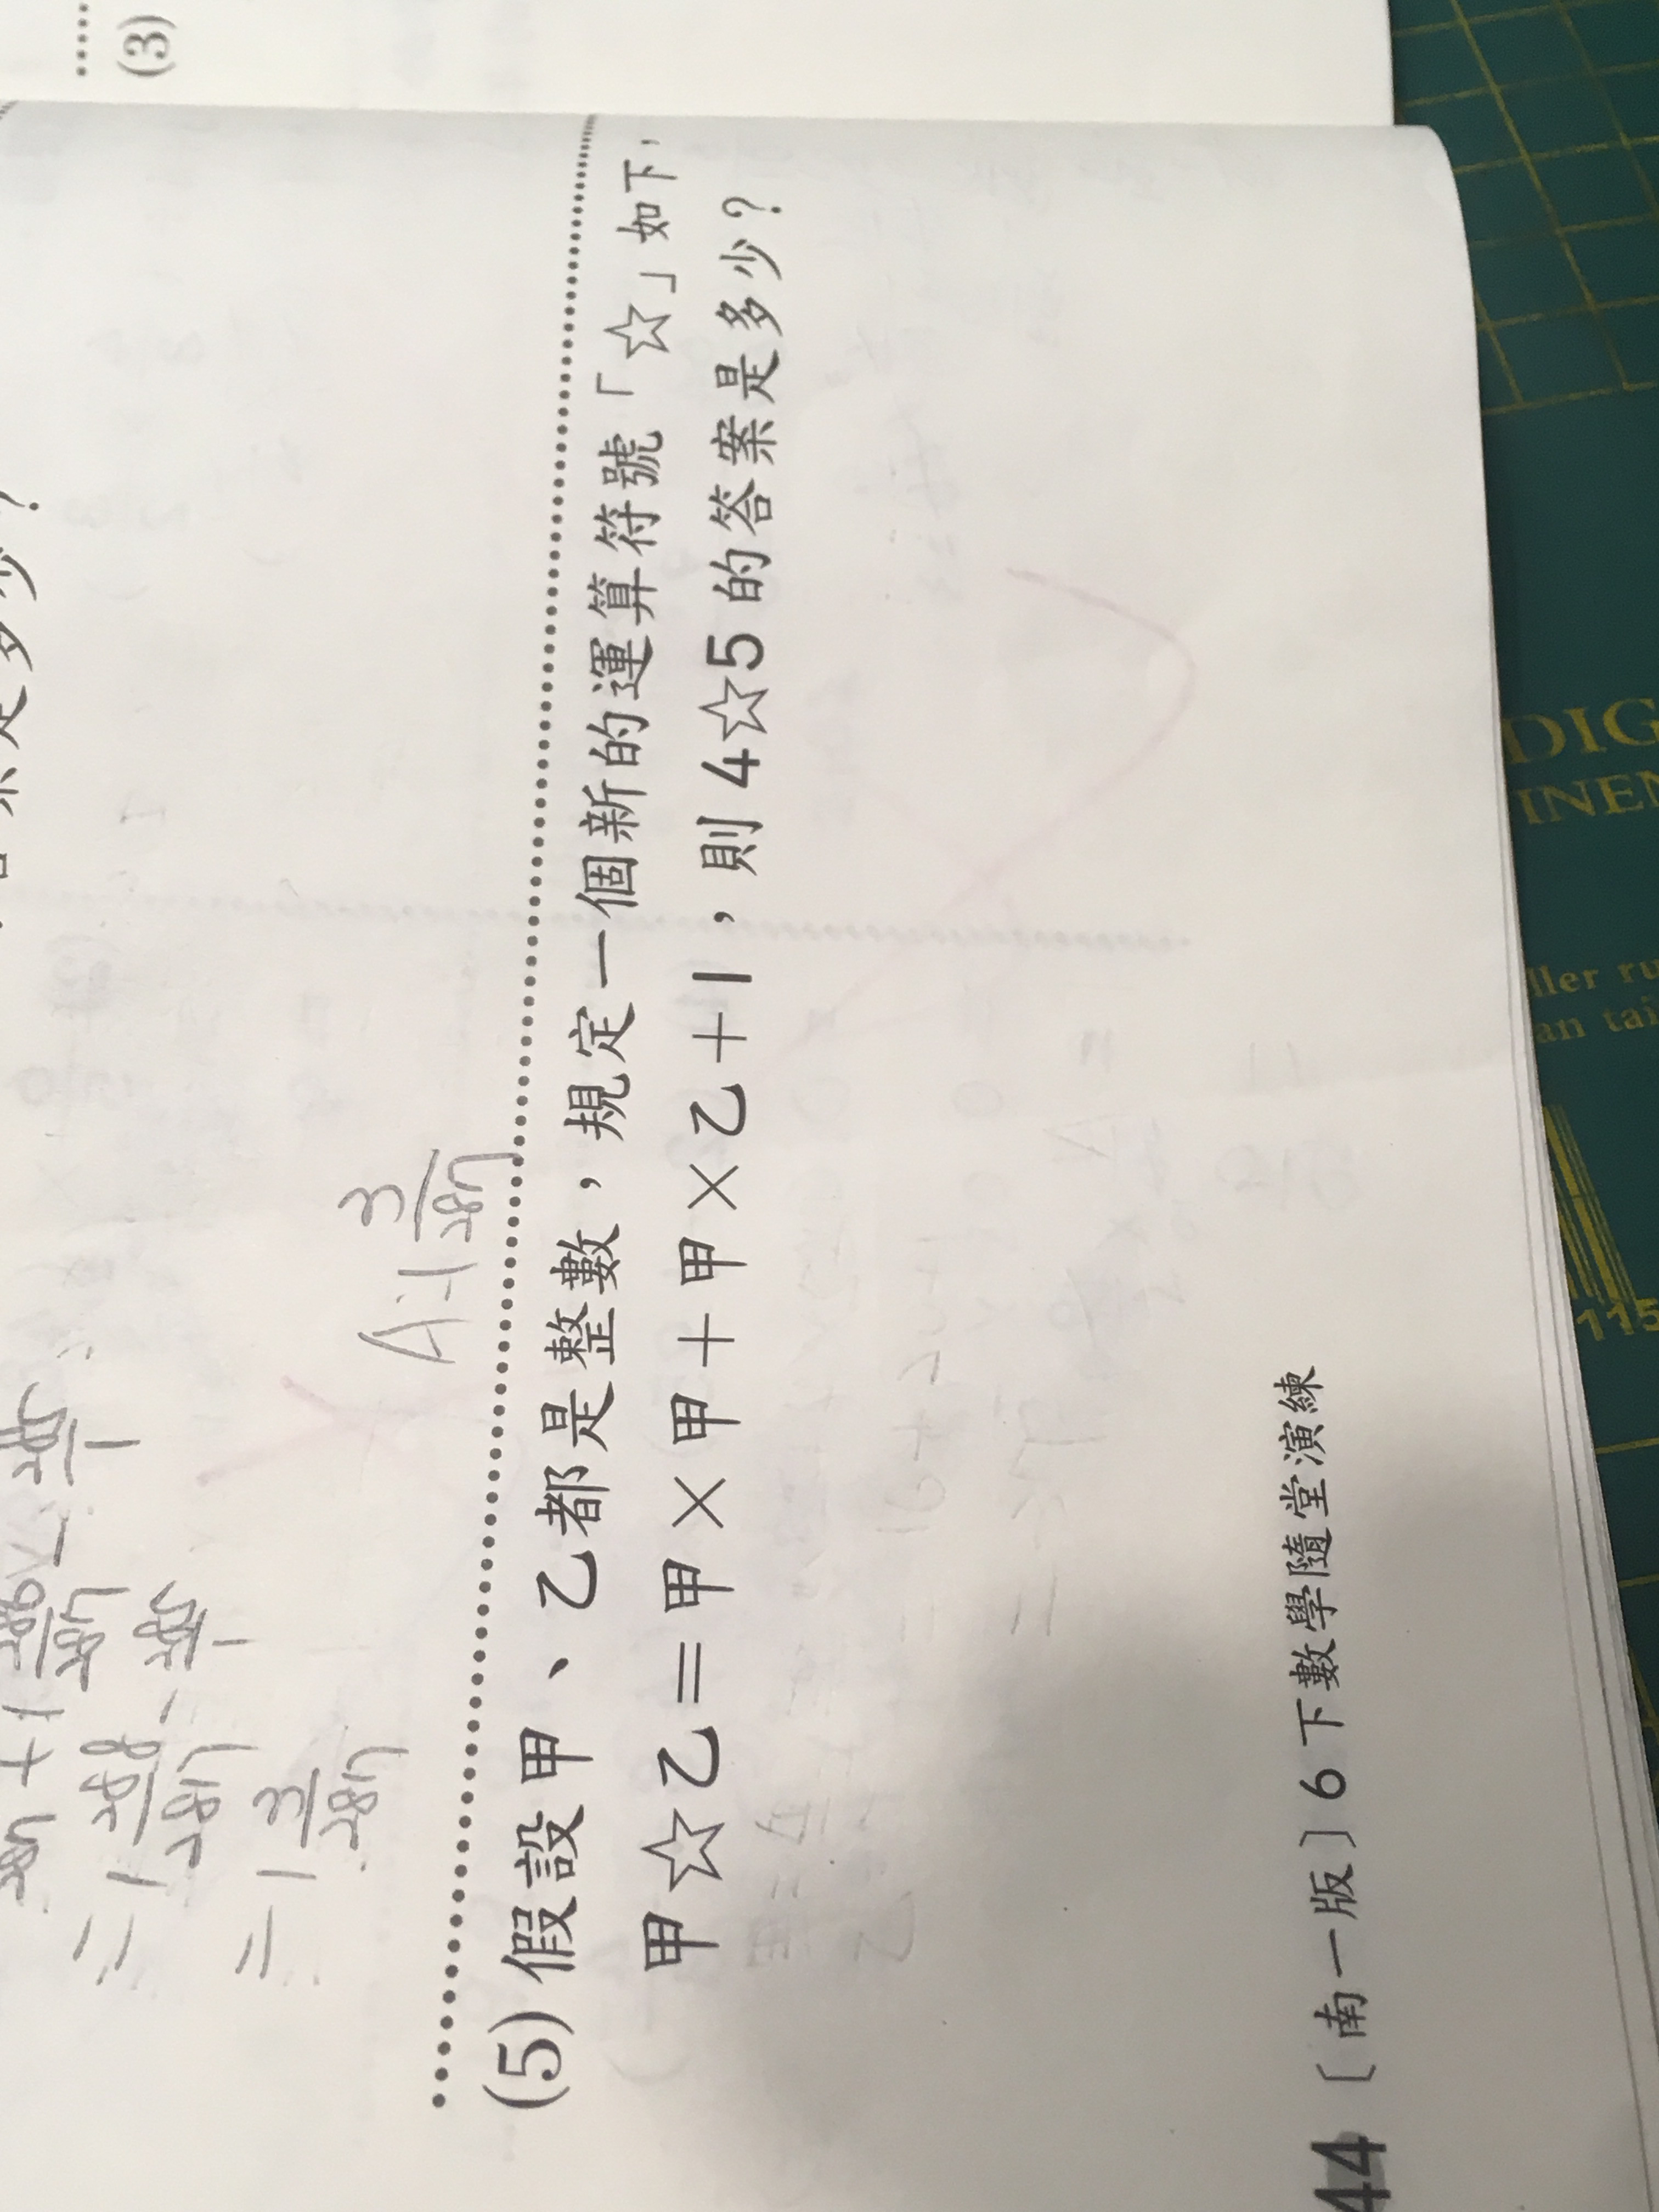 (3)
A:1 3/287
= 1 288/287 -
= 1 3/287
(5) 假設甲、乙都是整數，規定一個新的運算符號「☆」如下，
甲☆乙＝甲×甲＋甲×乙＋1，則4☆5的答案是多少？
44 〔南一版〕6下數學隨堂演練
DIG
INEN
ller ru
an tai
115